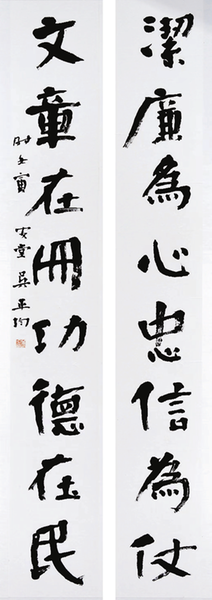 潔廉為心忠信為仗
文章在冊功德在民
時壬寅 安堂 吳平均